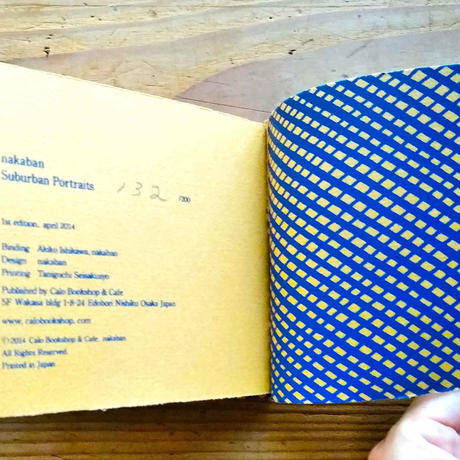 nakaban
Suburban Portraits 132 /200
1st edition, april 2014
Binding Akiko Ishikawa, nakaban
Design nakaban
Printing Taniguchi Seisakusyo
Published by Calo Bookshop & Cafe
5F Wakasa bldg 1-8-24 Edobori Nishiku Osaka Japan
www.calobookshop.com
©2014 Calo Bookshop & Cafe, nakaban
All Rights Reserved.
Printed in Japan